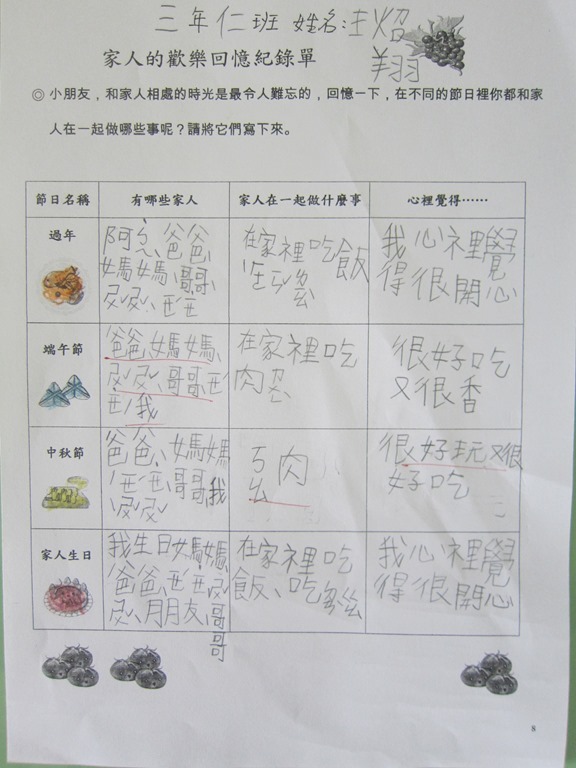 三年仁班 姓名:王炤
翔
家人的歡樂回憶紀錄單
◎ 小朋友，和家人相處的時光是最令人難忘的，回憶一下，在不同的節日裡你都和家
人在一起做哪些事呢？請將它們寫下來。
節日名稱 有哪些家人 家人在一起做什麼事 心裡覺得……
過年
阿 爸爸、
媽媽、哥哥、
在家裡吃飯
我心裡覺
得很開心
端午節
爸爸、媽媽、
哥哥、
我
在家裡吃
肉
很好吃
又很香
中秋節
爸爸、媽媽
哥哥、我
ㄎㄠ肉
很好玩又很
好吃
家人生日
我生日媽媽、
爸爸、
朋友、哥哥
在家裡吃
飯、吃
我心裡覺
得很開心
8